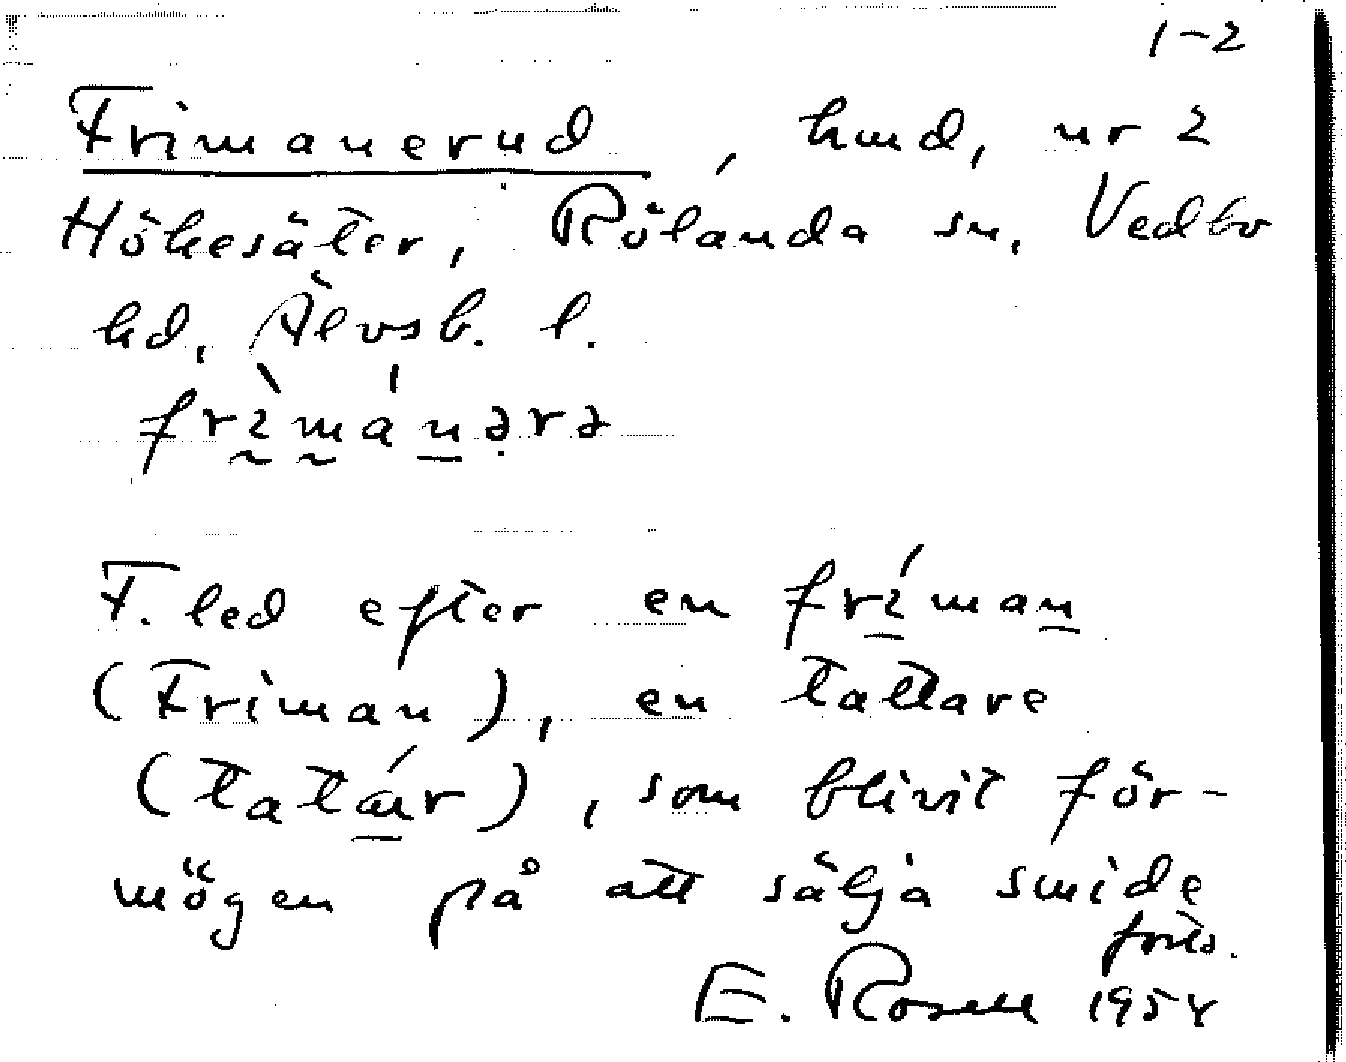 1-2
Frimanerud, hmd, nr 2
Hökesäter, Rölanda sn, Vedbo
hd, Älvsb. l.
frìmánərə
F. led efter en fríman
(Friman), en tattare
(tatár), som blivit för-
mögen på att sälja smide
forts.
E. Rosell 1954